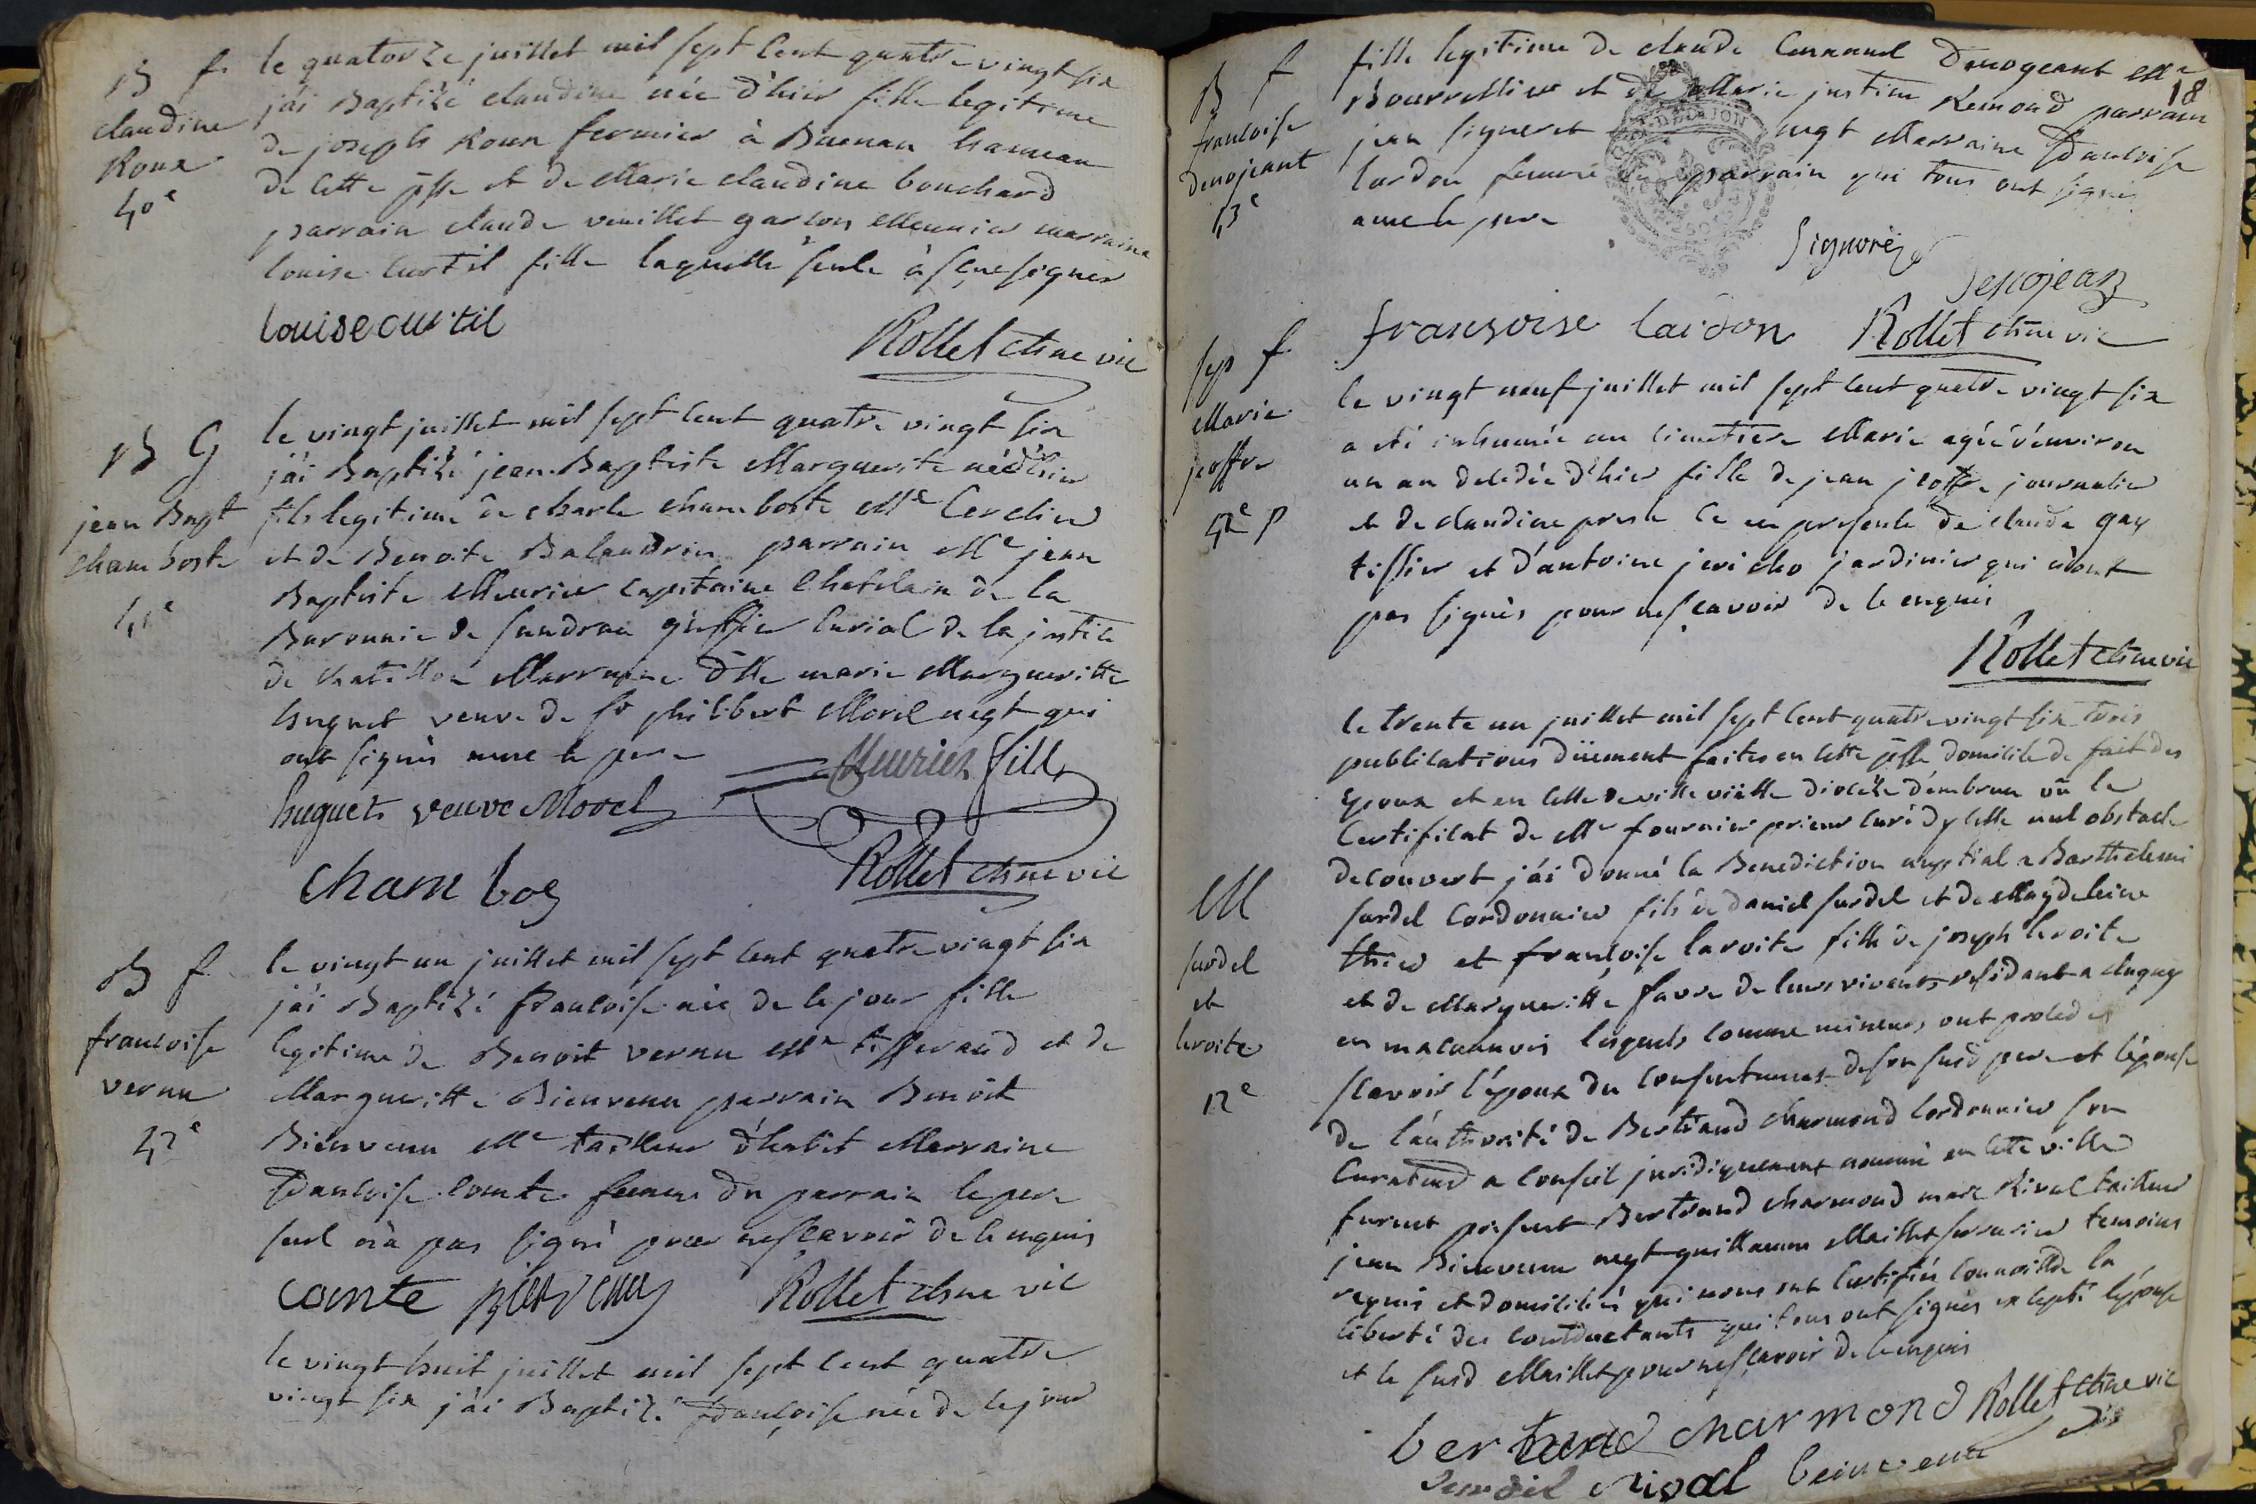 B f.
claudine
Roux
40e
le quatorze juillet mil sept cent quatre vingt six
j'ai Baptizé claudine née d'hier fille legitime
de joseph Roux fermier à Buenan hameau
de cette psse et de Marie claudine bouchard
parrain claude veuillet garcon Meunier marraine
louise curtil fille laquelle seule à sçue signer
louise curtil
Rollet chne vic
B G
jean Bapt
chamboste
41e
le vingt juillet mil sept cent quatre vingt six
j'ai Baptizé jean Baptiste Marguerite né d'hier
fils legitime de charle chamboste Me Cerclier
et de Benoite Balandrin parrain Me jean
Baptiste Meurier capitaine Chatelain de la
Baronnie de greffier curial de la justice
de chatillon Marraine dlle marie Margueritte
huguet veuve de sr philibert Morel negt qui
ont signés avec le pere
Meurier fils
huguet veuve Morel
chambos
Rollet chne vic
B f.
francoise
vernu
42e
le vingt un juillet mil sept cent quatre vingt six
j'ai Baptizé francoise née de ce jour fille
legitime de Benoit vernu Me tisserand et de
Margueritte Bienvenu parrain Benoit
Bienvenu Me tailleur d'habit Marraine
francoise comte femme du parrain le pere
seul n'a pas signé pour ne scavoir de ce enquis
comte bienvenu
Rollet chne vic
le vingt huit juillet mil sept cent quatre
vingt six j'ai Baptizé françoise née de ce jour
18
B f
francoise
denojeant
43e
fille legitime de claude Emanuel Denogeant Me
Bourrellier et de Marie justine Remond parrain
jean signeret negt Marraine francoise
lardon femme du parrain qui tous ont signés
avec le pere
Signoret
Denojean
françoise lardon
Rollet chne vic
sep f.
Marie
joffre
42e P
le vingt neuf juillet mil sept cent quatre vingt six
a été inhumée au cimetiere Marie agée d'environ
un an decedée d'hier fille de jean joffre journalier
et de claudine presle ce en presence de claude gay
tissier et d'antoine jericho jardinier qui n'ont
pas signés pour ne sçavoir de ce enquis
Rollet chne vic
M
surdel
et
leroite
12e
le trente un juillet mil sept cent quatre vingt six trois
publications düement faites en cette psse domicile de fait des
Epoux et en celle de ville vielle diocèze d'embrun vû le
Certificat de Mr fournier prieur curé dycelle nul obstacle
decouvert j'ai donné la Benediction nuptiale a Barthelemi
surdel Cordonnier fils de daniel surdel et de Magdeleine
et francoise laroite fille de joseph leroite
et de Margueritte favre de leurs vivants residant a clugny
en maconnois lesquels comme mineurs ont procedés
scavoir l'epoux du consentement de son susd pere et l'épouse
de l'authorité de Bertrand charmond Cordonnier son
Curateur a conseil juridiquement nommé en cette ville
furent present Bertrand charmond marc Rival tailleur
jean Bienvenu negt guillaume Maillet serrurier temoins
requis et domiciliés qui nous ont certifiés connoitre la
liberté des contractants qui tous ont signés excepté l'épouse
et le susd Maillet pour ne sçavoir de ce enquis
bertrand charmond
Rollet chne vic
rival bienvenu